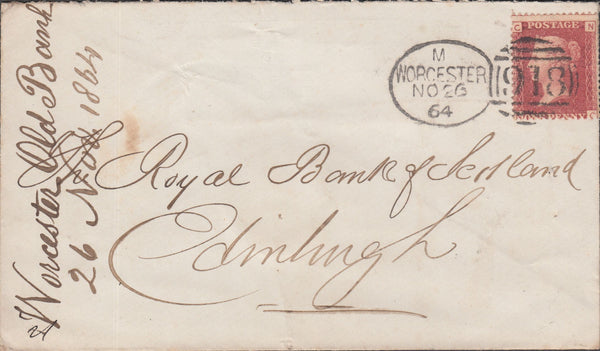 Worcester Old Bank
26 Nov 1864
M
WORCESTER
NO 26
64
918
G N
POSTAGE
ONE PENNY
N G
Royal Bank of Scotland
Edinburgh